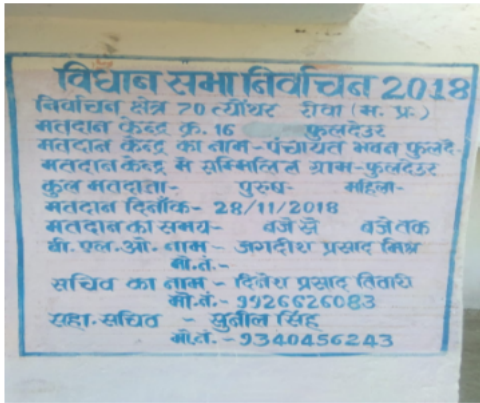 विधान सभा निर्वाचन 2018
निर्वाचन क्षेत्र 70 त्योंथर रीवा (म. प्र.)
मतदान केन्द्र क्र. 16 फुलदेउर
मतदान केन्द्र का नाम - पंचायत भवन फुलदे-
मतदान केन्द्र में सम्मिलित ग्राम - फुलदेउर
कुल मतदाता- पुरुष- महिला-
मतदान दिनाँक- 28/11/2018
मतदान का समय- बजे से बजे तक
बी. एल. ओ. नाम - जगदीश प्रसाद मिश्र
मो.नं.-
सचिव का नाम - दिनेश प्रसाद तिवारी
मो.नं. - 9926626083
सहा. सचिव - सुनील सिंह
मो.नं. - 9340456243